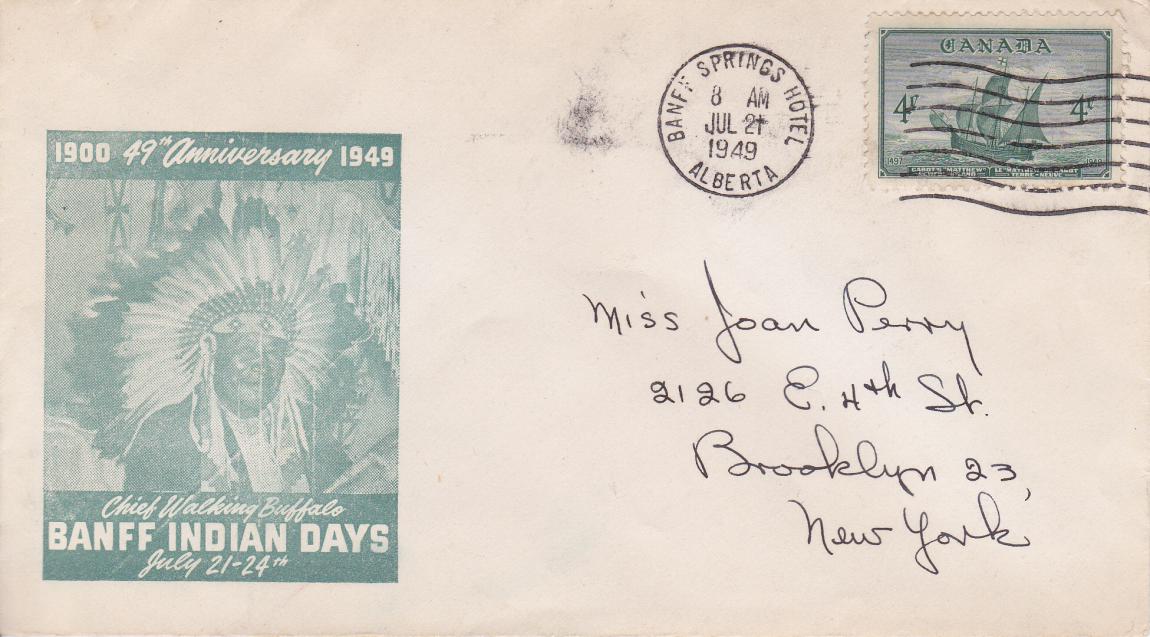 1900 49th Anniversary 1949
Chief Walking Buffalo
BANFF INDIAN DAYS
July 21-24th
BANFF SPRINGS HOTEL
8 AM
JUL 21
1949
ALBERTA
CANADA
4¢ 4¢
1497
CABOT'S "MATTHEW" LE "MATTHEW" CABOT
TERRE-NEUVE
Miss Joan Perry
2126 E. 4th St.
Brooklyn 23,
New York